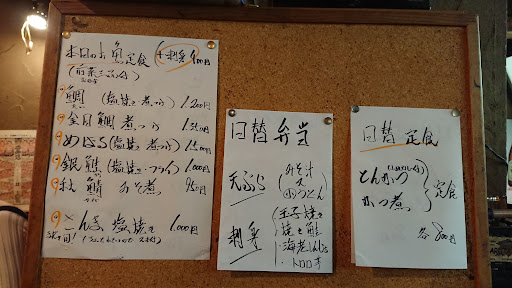 本日のお魚定食 (+刺身 100円
(前菜三点付)
鯛 (塩焼き 煮つけ) 1.200円
金目鯛 煮つけ 1.350円
めばる (塩焼き 煮つけ) 1.500円
銀鮭 (塩焼き・フライ) 1.000円
秋鯖 みそ煮 950円
さんま 塩焼き 1.000円
日替弁当
天ぷら
みそ汁
又
うどん
刺身
玉子焼き
焼き鮭
海老しんじょ
トロロ芋
日替定食
とんかつ
かつ煮
定食
各 800円